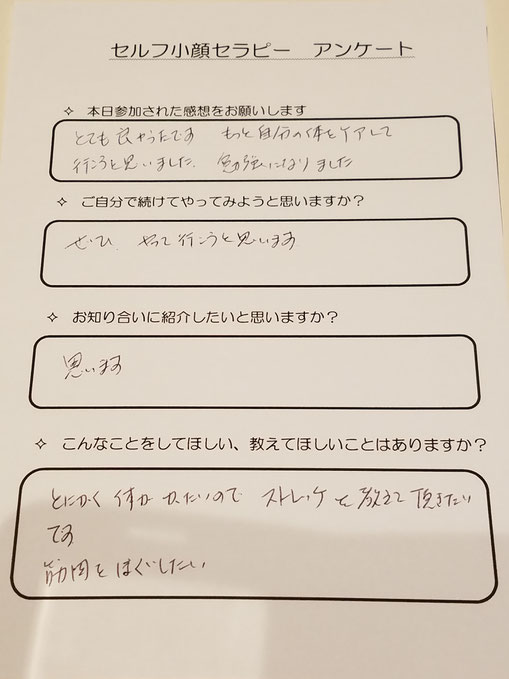 セルフ小顔セラピー　アンケート
✧ 本日参加された感想をお願いします
とても良かったです　もっと自分の体をケアして
行こうと思いました。勉強になりました
✧ ご自分で続けてやってみようと思いますか？
ぜひ、やって行こうと思います
✧ お知り合いに紹介したいと思いますか？
思います
✧ こんなことをしてほしい、教えてほしいことはありますか？
とにかく 体が かたいので ストレッチを教えて頂きたい
です
筋肉をほぐしたい